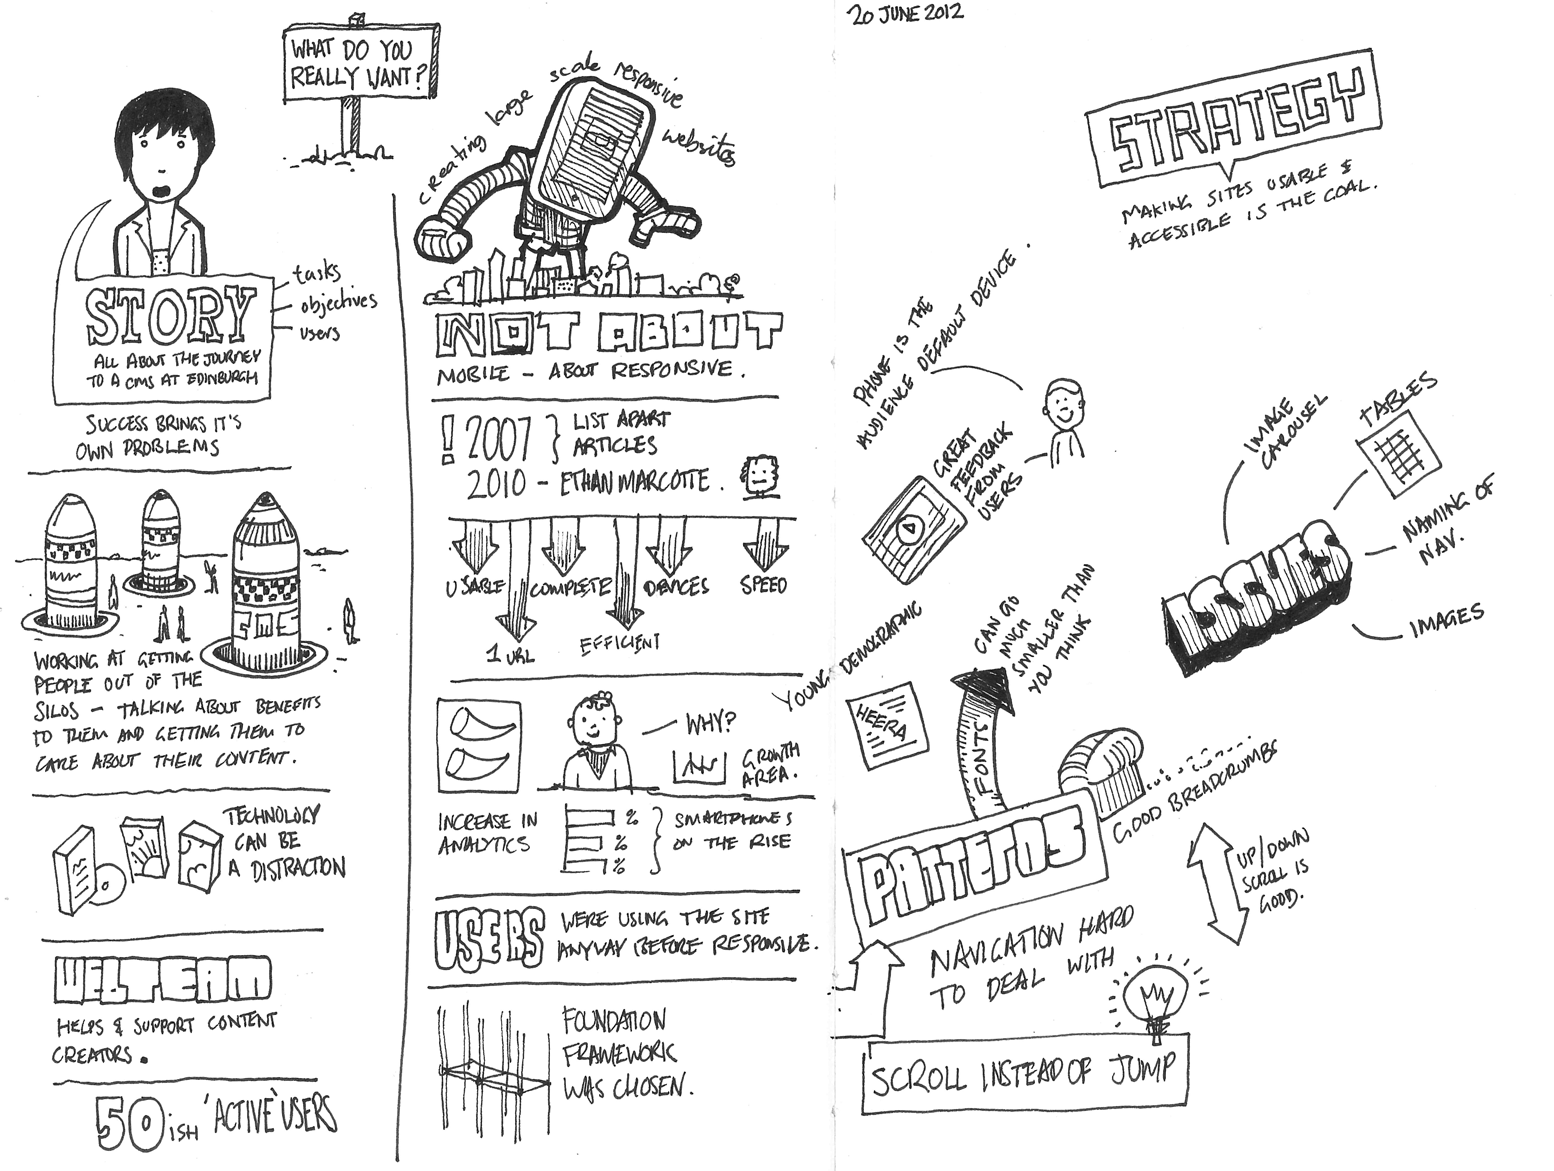 20 JUNE 2012
WHAT DO YOU
REALLY WANT?
STORY
ALL ABOUT THE JOURNEY
TO A CMS AT EDINBURGH
tasks
objectives
users
SUCCESS BRINGS IT'S
OWN PROBLEMS
WORKING AT GETTING
PEOPLE OUT OF THE
SILOS – TALKING ABOUT BENEFITS
TO THEM AND GETTING THEM TO
CARE ABOUT THEIR CONTENT.
TECHNOLOGY
CAN BE
A DISTRACTION
WEBTEAM
HELPS & SUPPORT CONTENT
CREATORS.
50ish 'ACTIVE' USERS
creating large scale responsive websites
NOT ABOUT
MOBILE – ABOUT RESPONSIVE.
! 2007 } LIST APART
ARTICLES
2010 – ETHAN MARCOTTE.
USABLE
COMPLETE
DEVICES
SPEED
1 URL
EFFICIENT
WHY?
GROWTH
AREA.
INCREASE IN
ANALYTICS
%
%
%
SMARTPHONES
ON THE RISE
USERS WERE USING THE SITE
ANYWAY BEFORE RESPONSIVE.
FOUNDATION
FRAMEWORK
WAS CHOSEN.
STRATEGY
MAKING SITES USABLE &
ACCESSIBLE IS THE GOAL.
PHONE IS THE
AUDIENCE DEFAULT DEVICE.
GREAT
FEEDBACK
FROM
USERS
YOUNG DEMOGRAPHIC
HEERA
CAN GO
MUCH
SMALLER THAN
YOU THINK
FONTS
PATTERNS
GOOD BREADCRUMBS
UP/DOWN
SCROLL IS
GOOD.
NAVIGATION HARD
TO DEAL WITH
SCROLL INSTEAD OF JUMP
ISSUES
IMAGE
CAROUSEL
TABLES
NAMING OF
NAV.
IMAGES